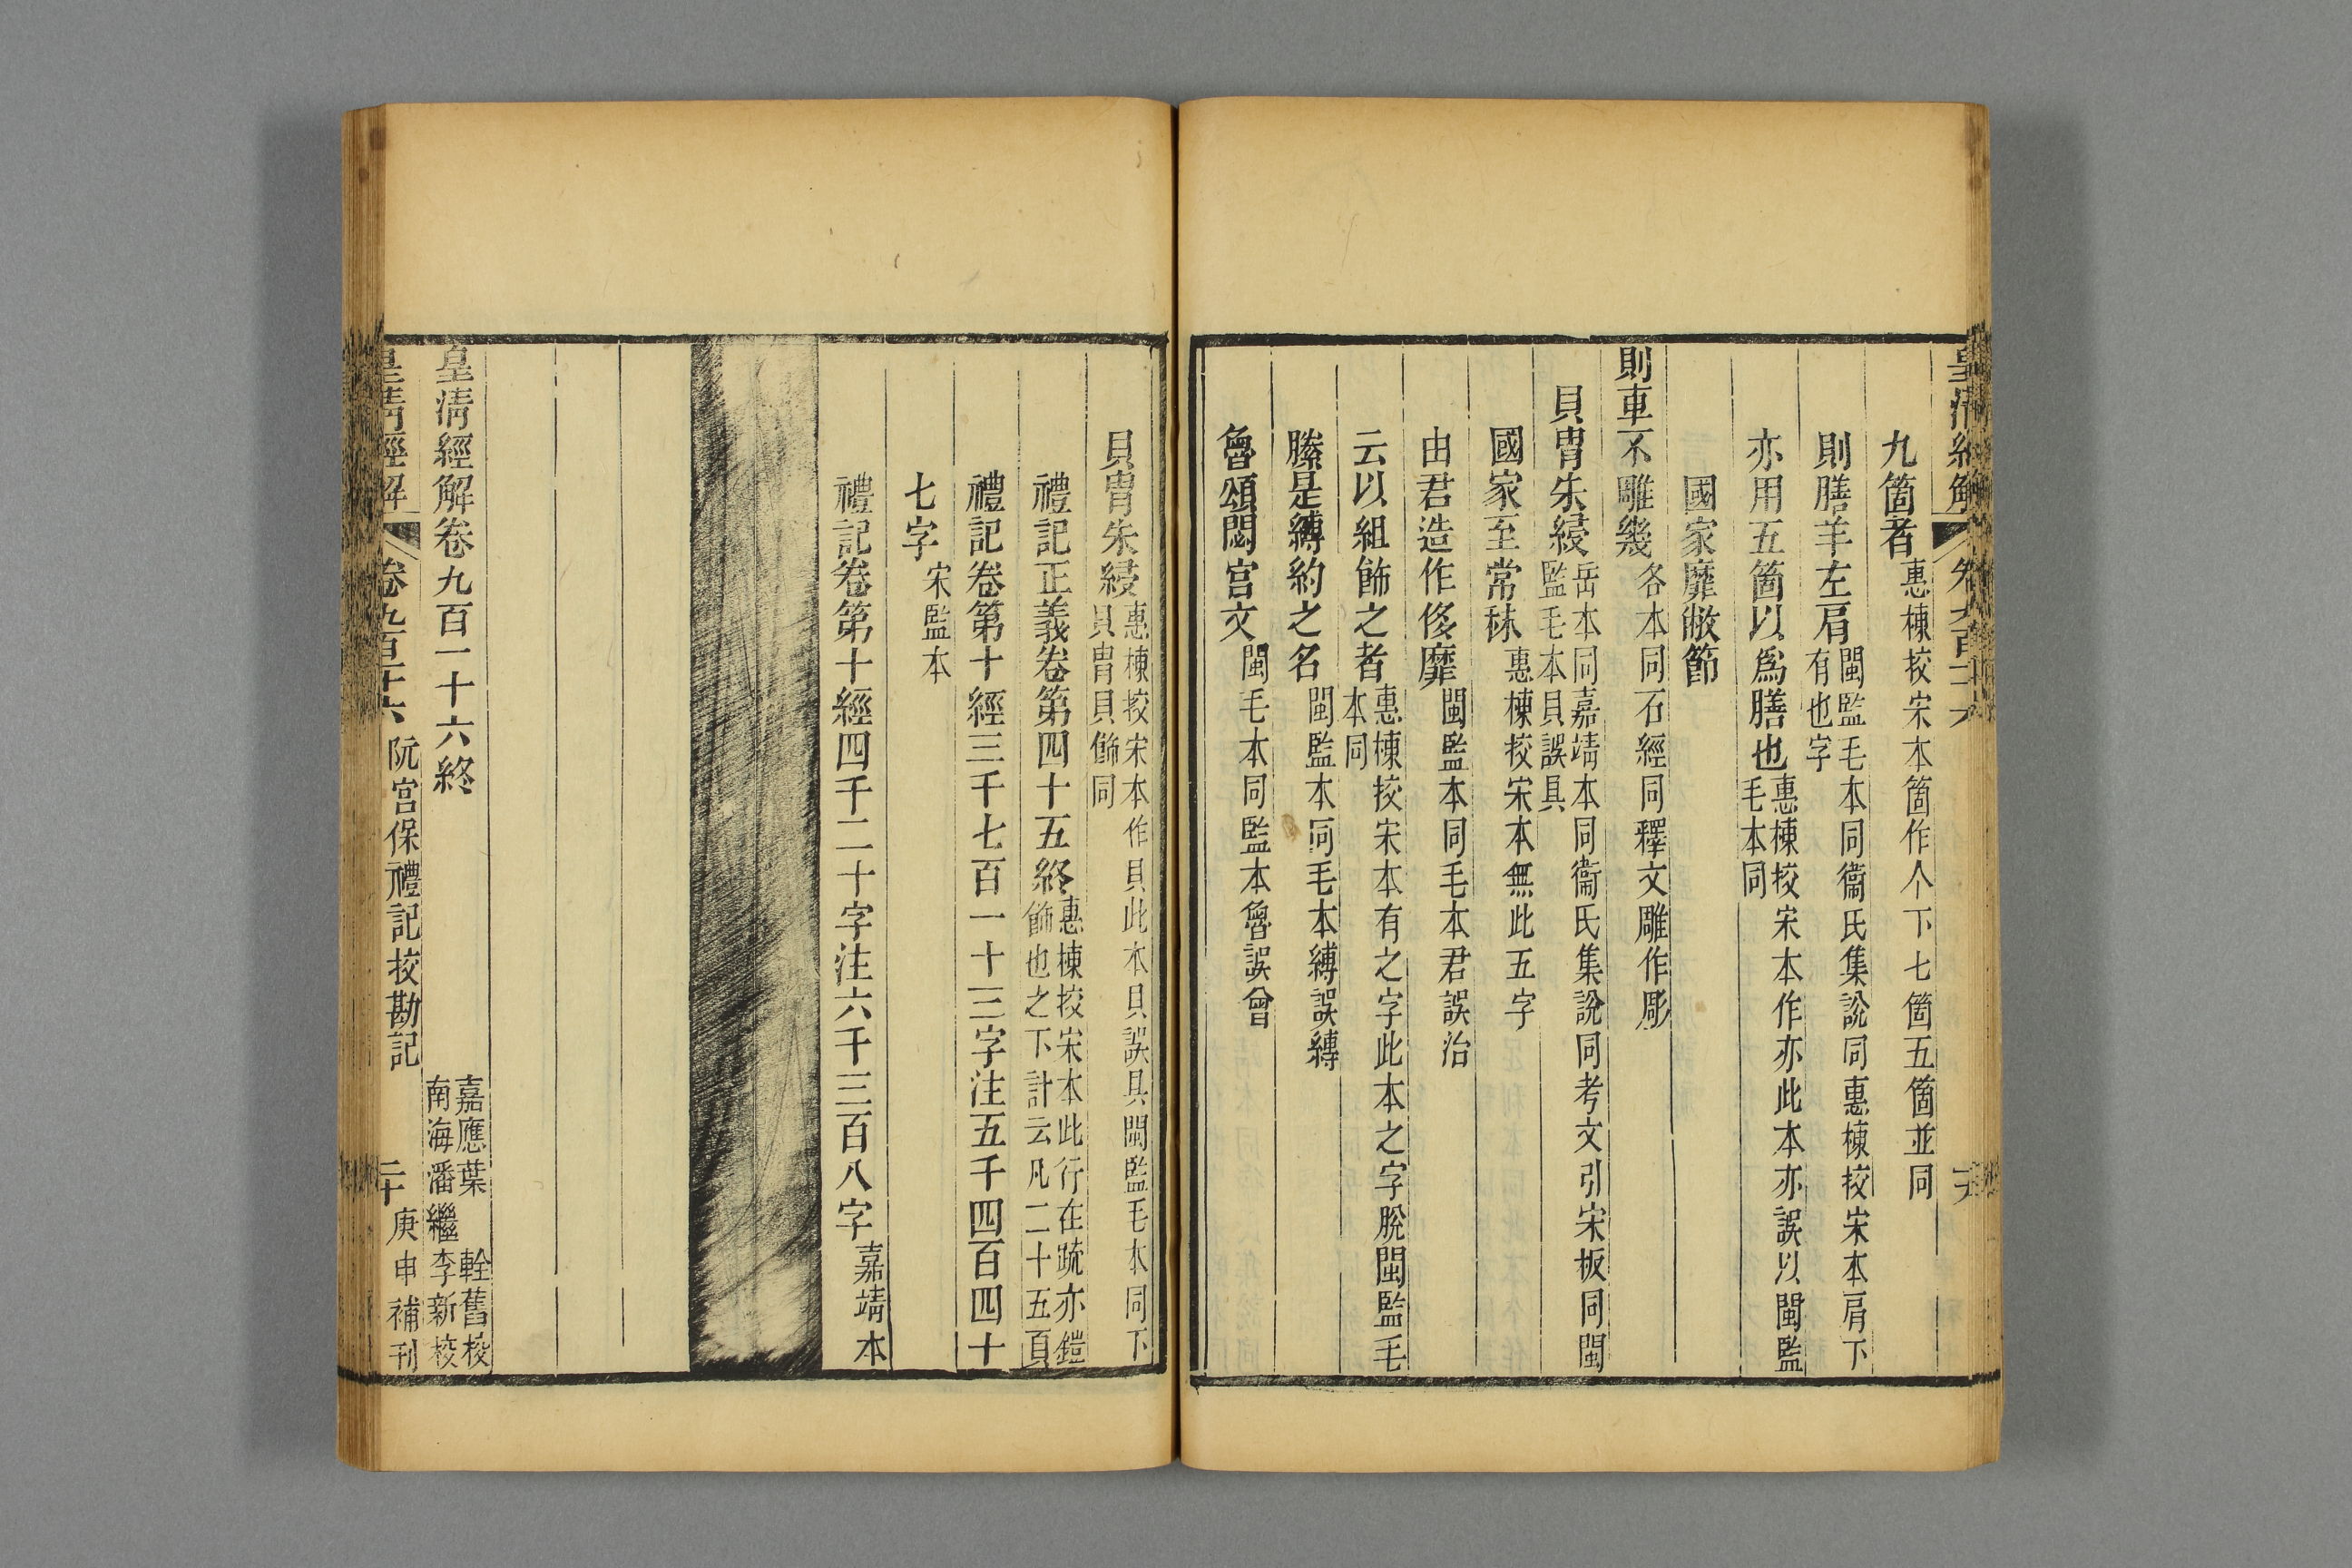 皇清經解 卷九百十六 十九
九箇者惠棟挍宋本箇作个下七箇五箇並同
則膳羊左肩閩監毛本同衞氏集說同惠棟挍宋本肩下有也字
亦用五箇以爲膳也惠棟挍宋本作亦此本亦誤以閩監毛本同
國家靡敝節
則車不雕幾各本同石經同釋文雕作彫
貝胄朱綅岳本同嘉靖本同衞氏集說同考文引宋板同閩監毛本貝誤具
國家至常秣惠棟挍宋本無此五字
由君造作侈靡閩監本同毛本君誤治
云以組飾之者惠棟挍宋本有之字此本之字脫閩監毛本同
縢是縛約之名閩監本同毛本縛誤縳
魯頌閟宮文閩毛本同監本魯誤曾
貝胄朱綅惠棟挍宋本作貝此本貝誤具閩監毛本同下貝胄貝飾同
禮記正義卷第四十五終惠棟挍宋本此行在疏亦鎧飾也之下計云凡二十五頁
禮記卷第十經三千七百一十三字注五千四百四十
七字宋監本
禮記卷第十經四千二十字注六千三百八字嘉靖本
皇清經解卷九百一十六終
嘉應葉軡舊校
南海潘繼李新校
皇清經解 卷九百十六 阮宮保禮記挍勘記 二十 庚申補刊